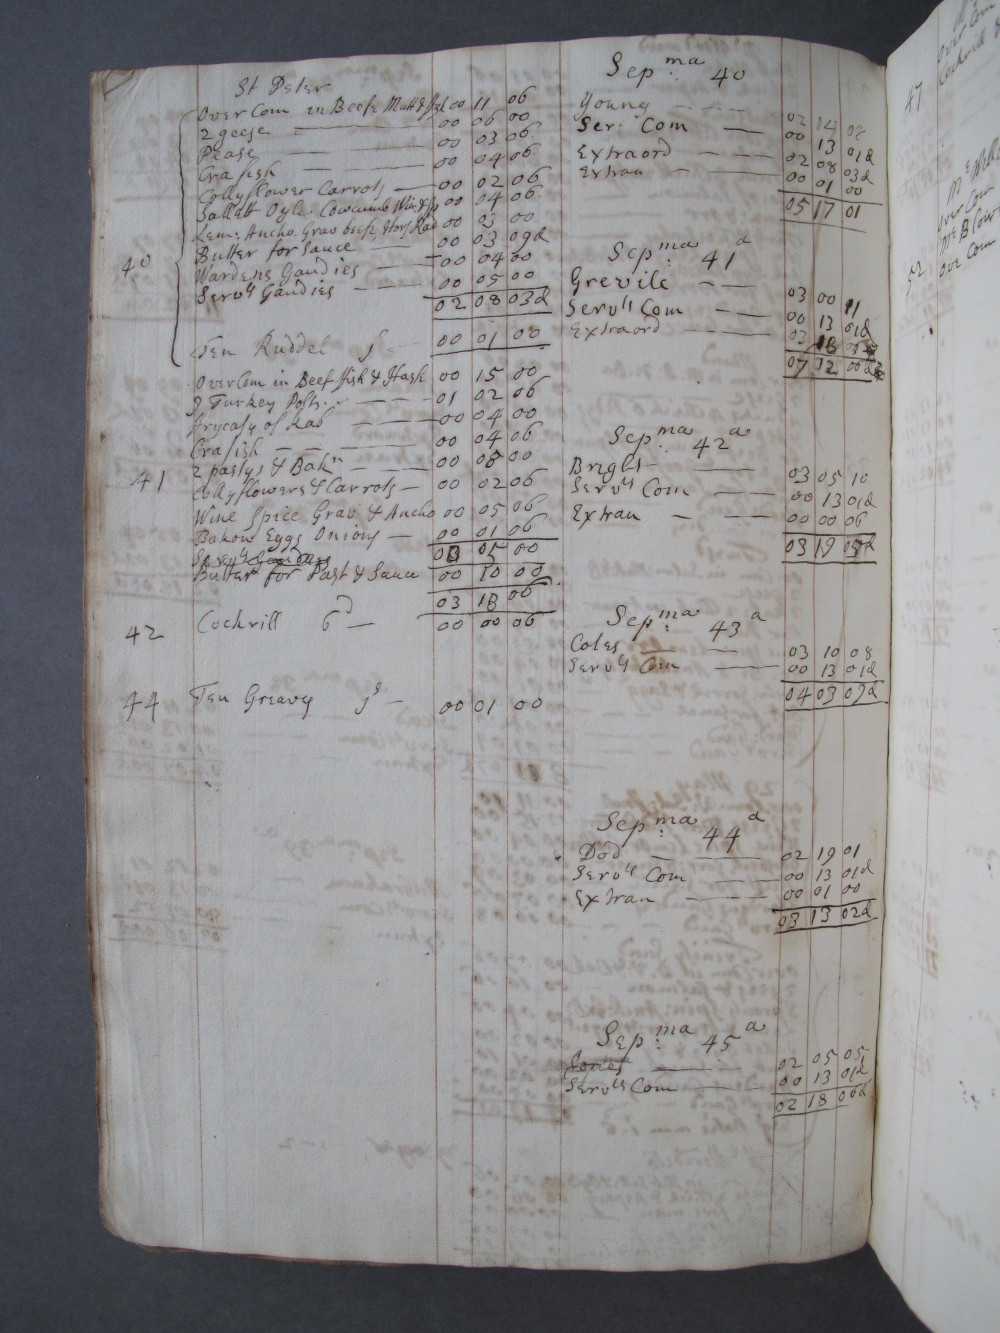 St Peter
Over Com in Beefe Mutt & 00 11 06
2 geese 00 06 00
Pease 00 03 06
Crafish 00 04 06
Collyflower Carrots 00 02 06
Sallatt Oyle Cowcumb Win 00 04 06
Lem: Ancho. Grav beefe Hors Rad 00 03 00
Butter for Sauce 00 03 09d
Wardens Gaudies 00 04 00
40 Servts Gaudies 00 05 00
02 08 03d
Ten Ruddel 00 01 00
Over Com in Beef fish & Hash 00 15 00
Turkey Polts 01 02 06
frycasy of Rab 00 04 00
Crafish 00 04 06
41 2 pastys & Bakn 00 08 00
Collyflowers & Carrots 00 02 06
Wine Spice Grav & Ancho 00 05 06
Bakon Eggs Onions 00 01 06
Servts Gaudies 03 05 00
Butter for Past & Sauce 00 10 00
03 18 00
42 Cockrill 6d 00 00 06
44 Ten Greavy 00 01 00
Sepma 40
Young 02 14 08
Ser: Com 00 13 01d
Extraord 02 08 03d
Extran 00 01 00
05 17 01
Sepma 41a
Grevile 03 00 11
Servts Com 00 13 01d
Extraord 03 18 00
07 12 00d
Sepma 42a
Bright 03 05 10
Servts Com 00 13 01d
Extran 00 00 06
03 19 05d
Sepma 43a
Coles 03 10 08
Servts Com 00 13 01d
04 03 09d
Sepma 44a
Dod 02 19 01
Servts Com 00 13 01d
Extran 00 01 00
03 13 02d
Sepma 45a
Jones 02 05 05
Servts Com 00 13 01d
02 18 06d
Over Com
47 Cockrill
Over Com
52 Over Com